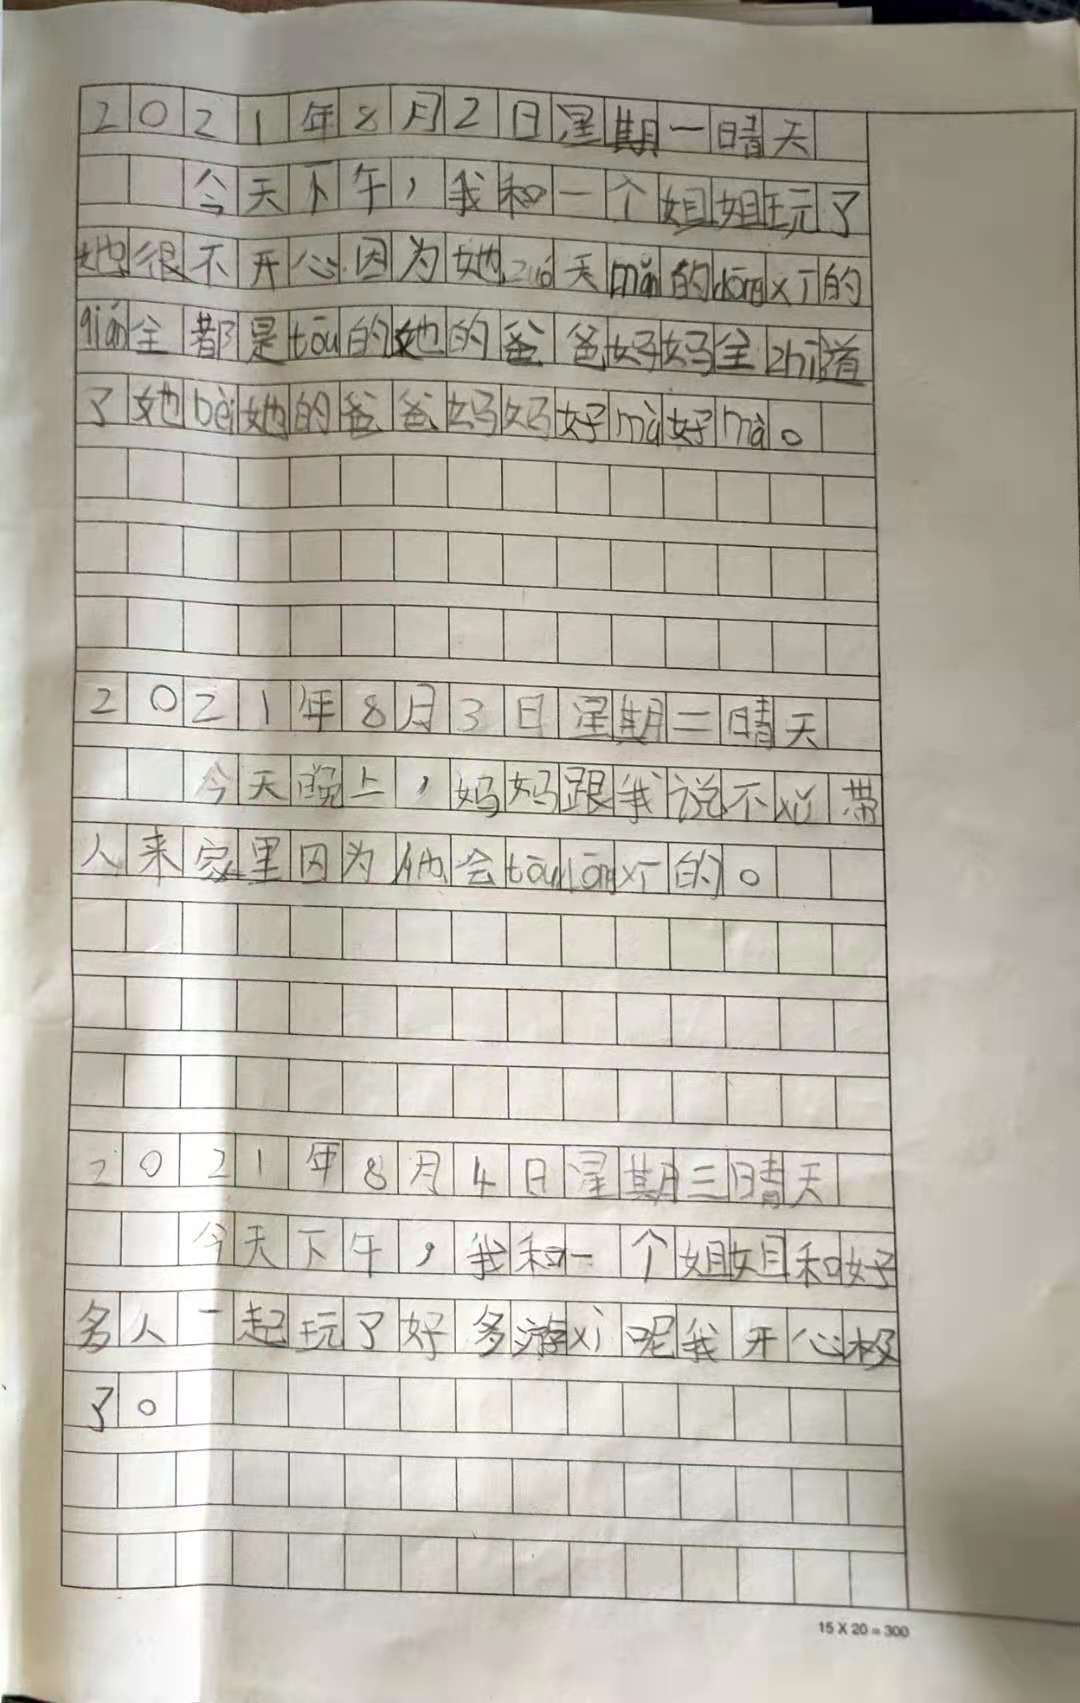 2021年8月2日星期一晴天
今天下午，我和一个姐姐玩了
她很不开心.因为她zuó天mǎi的dōngxī的
qián全都是tōu的她的爸爸妈妈全zhī道
了她bèi她的爸爸妈妈好mà好mà。
2021年8月3日星期二晴天
今天晚上，妈妈跟我说不xǔ带
人来家里因为他会tōudōngxī的。
2021年8月4日星期三晴天
今天下午，我和一个姐姐和好
多人一起玩了好多游xì呢我开心极
了。
15 X 20 = 300